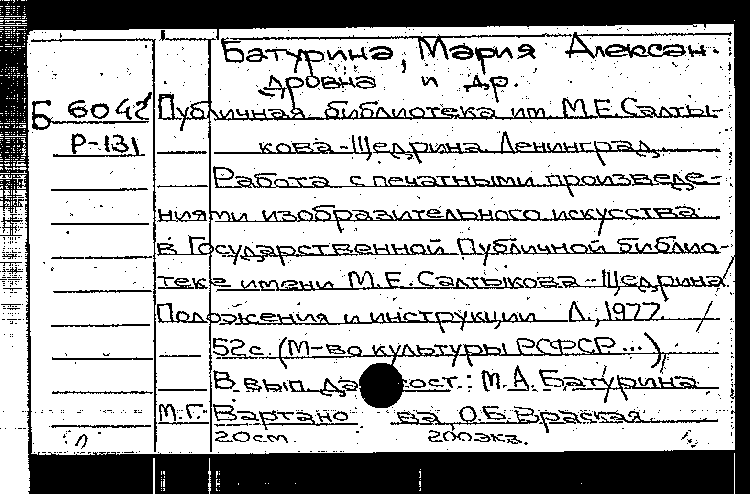 Батурина, Мария Алексан-
дровна и др.
Б 6042 Публичная библиотека им. М.Е.Салты-
Р-131 кова-Щедрина Ленинград.
Работа с печатными произведе-
ниями изобразительного искусства
в Государственной Публичной библио-
теке имени М.Е.Салтыкова-Щедрина
Положения и инструкции Л., 1977.
52с. (М-во культуры РСФСР...)
В вып. дан сост.: М.А.Батурина
М.Г. Вартано ва, О.Б.Враская
20см. 200экз.